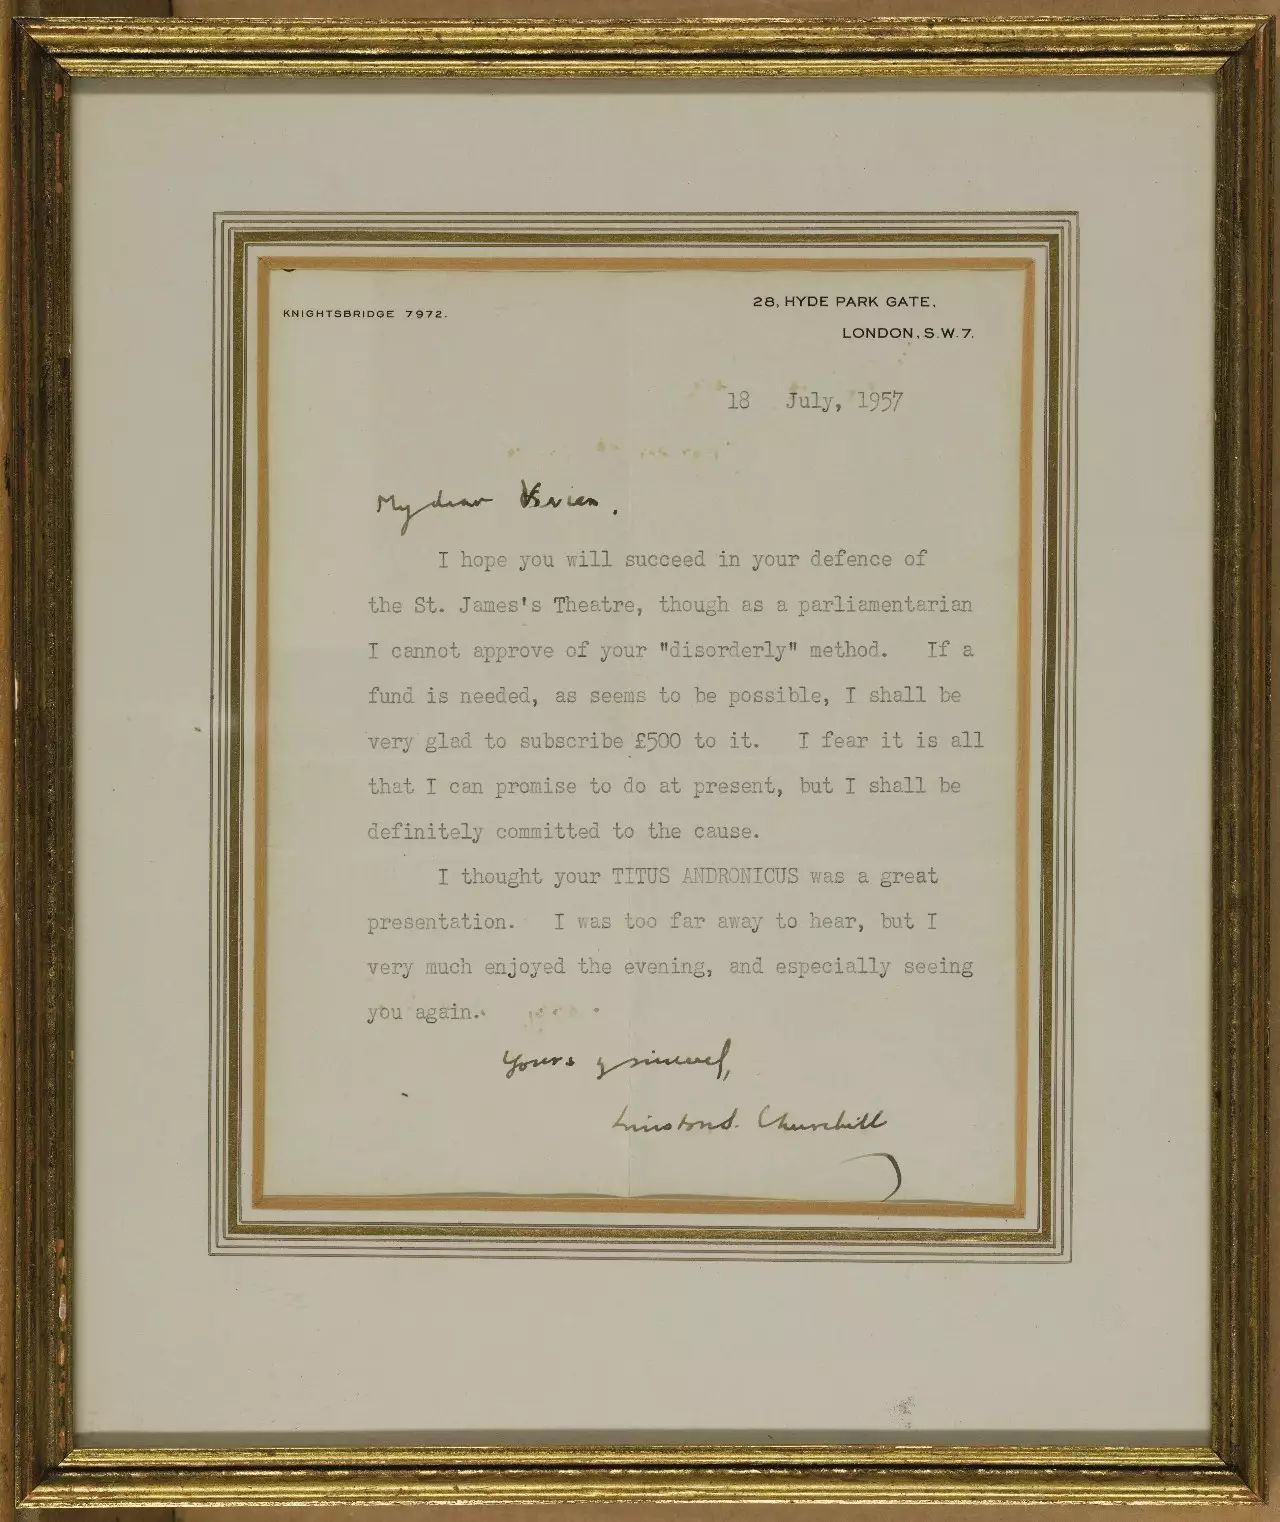 KNIGHTSBRIDGE 7972.
28, HYDE PARK GATE,
LONDON, S.W.7.
18 July, 1957
My dear Vivien,
I hope you will succeed in your defence of
the St. James's Theatre, though as a parliamentarian
I cannot approve of your "disorderly" method. If a
fund is needed, as seems to be possible, I shall be
very glad to subscribe £500 to it. I fear it is all
that I can promise to do at present, but I shall be
definitely committed to the cause.
I thought your TITUS ANDRONICUS was a great
presentation. I was too far away to hear, but I
very much enjoyed the evening, and especially seeing
you again.
Yours v sincerely,
Winston S. Churchill